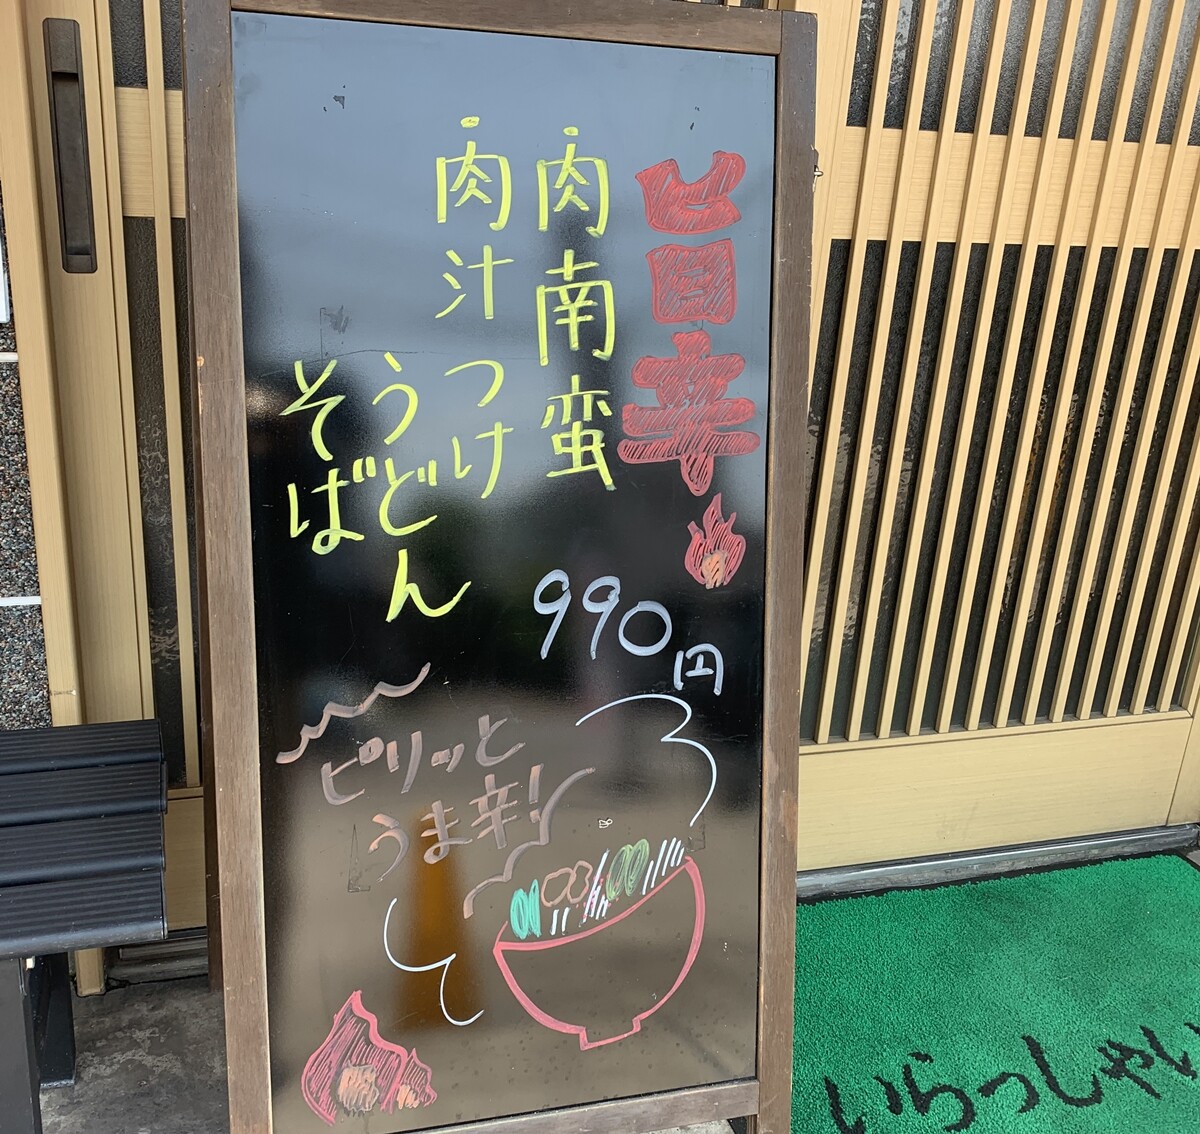 旨辛
肉南蛮
肉汁つけ
うどん
そば
990円
ピリッと
うま辛!
いらっしゃい